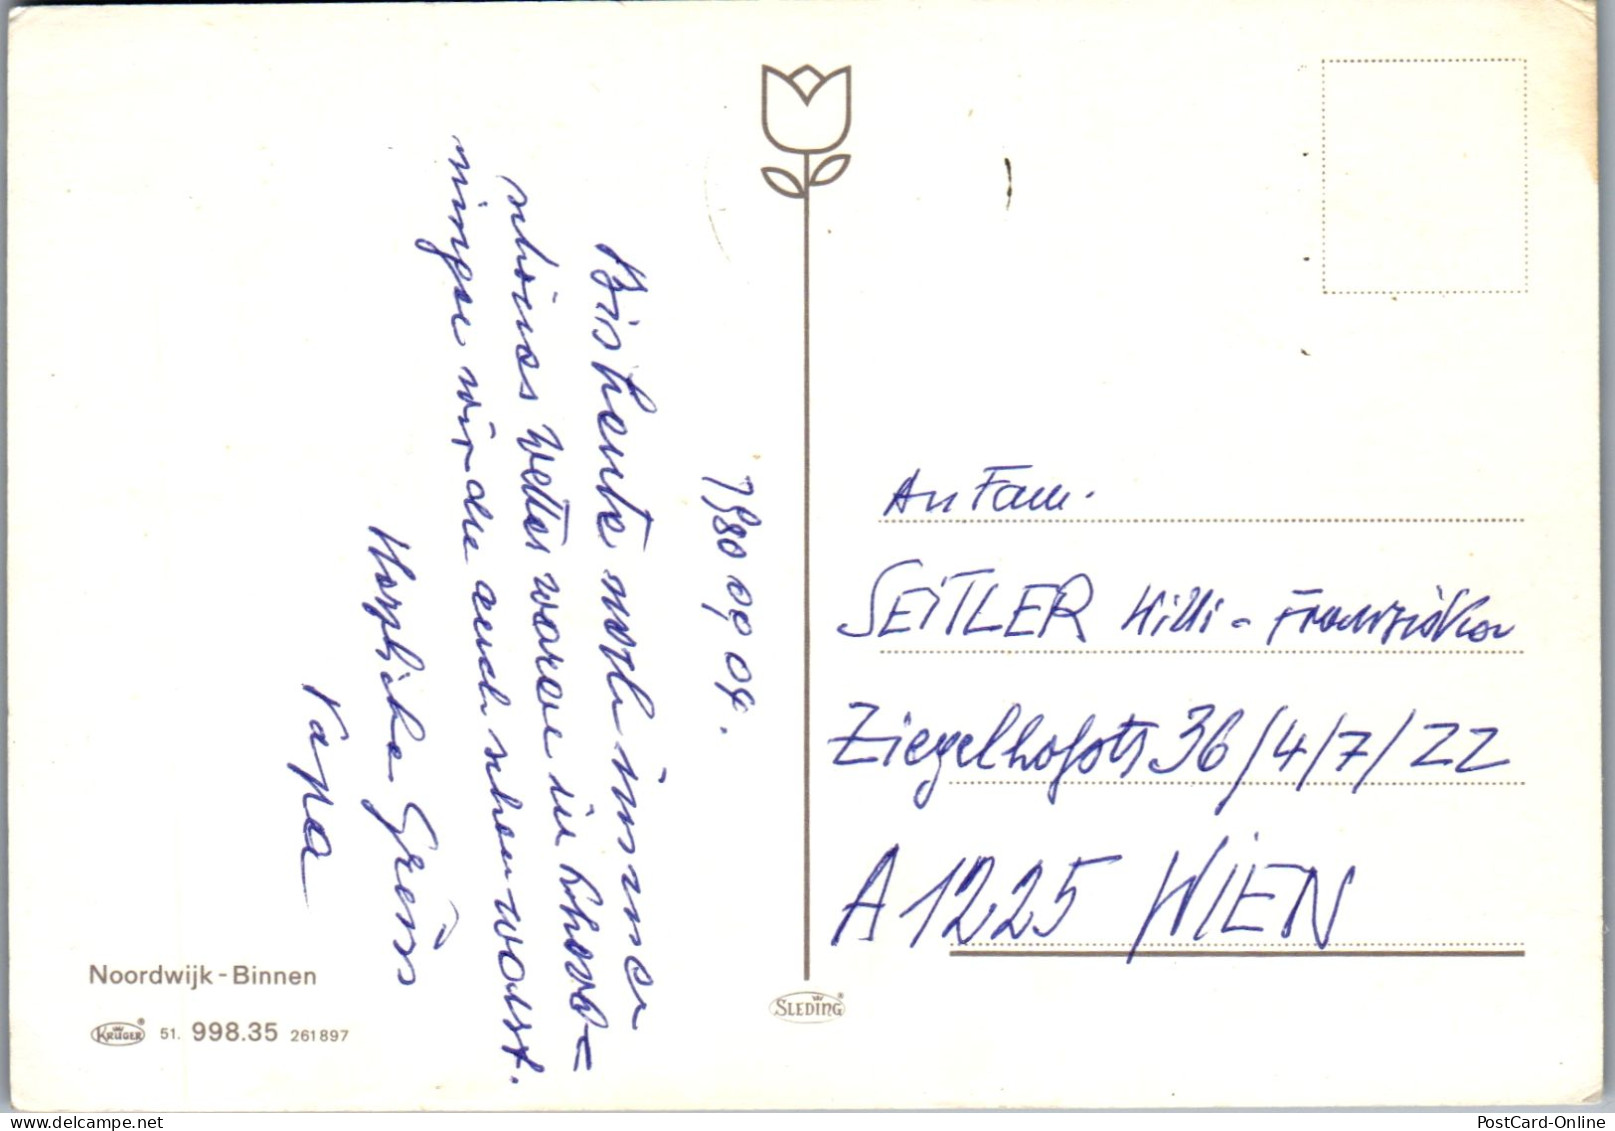 1980 09 04.
Bis heute noch immer
schönes Wetter waren in Schewe=
ningen wir du auch schon warst.
Herzliche Grüße
Papa
An Fam.
SEITLER Willi - Franziska
Ziegelhofstr 36/4/7/22
A 1225 WIEN
Noordwijk - Binnen
KRÜGER 51. 998.35 261897
SLEDING
PostCard-Online